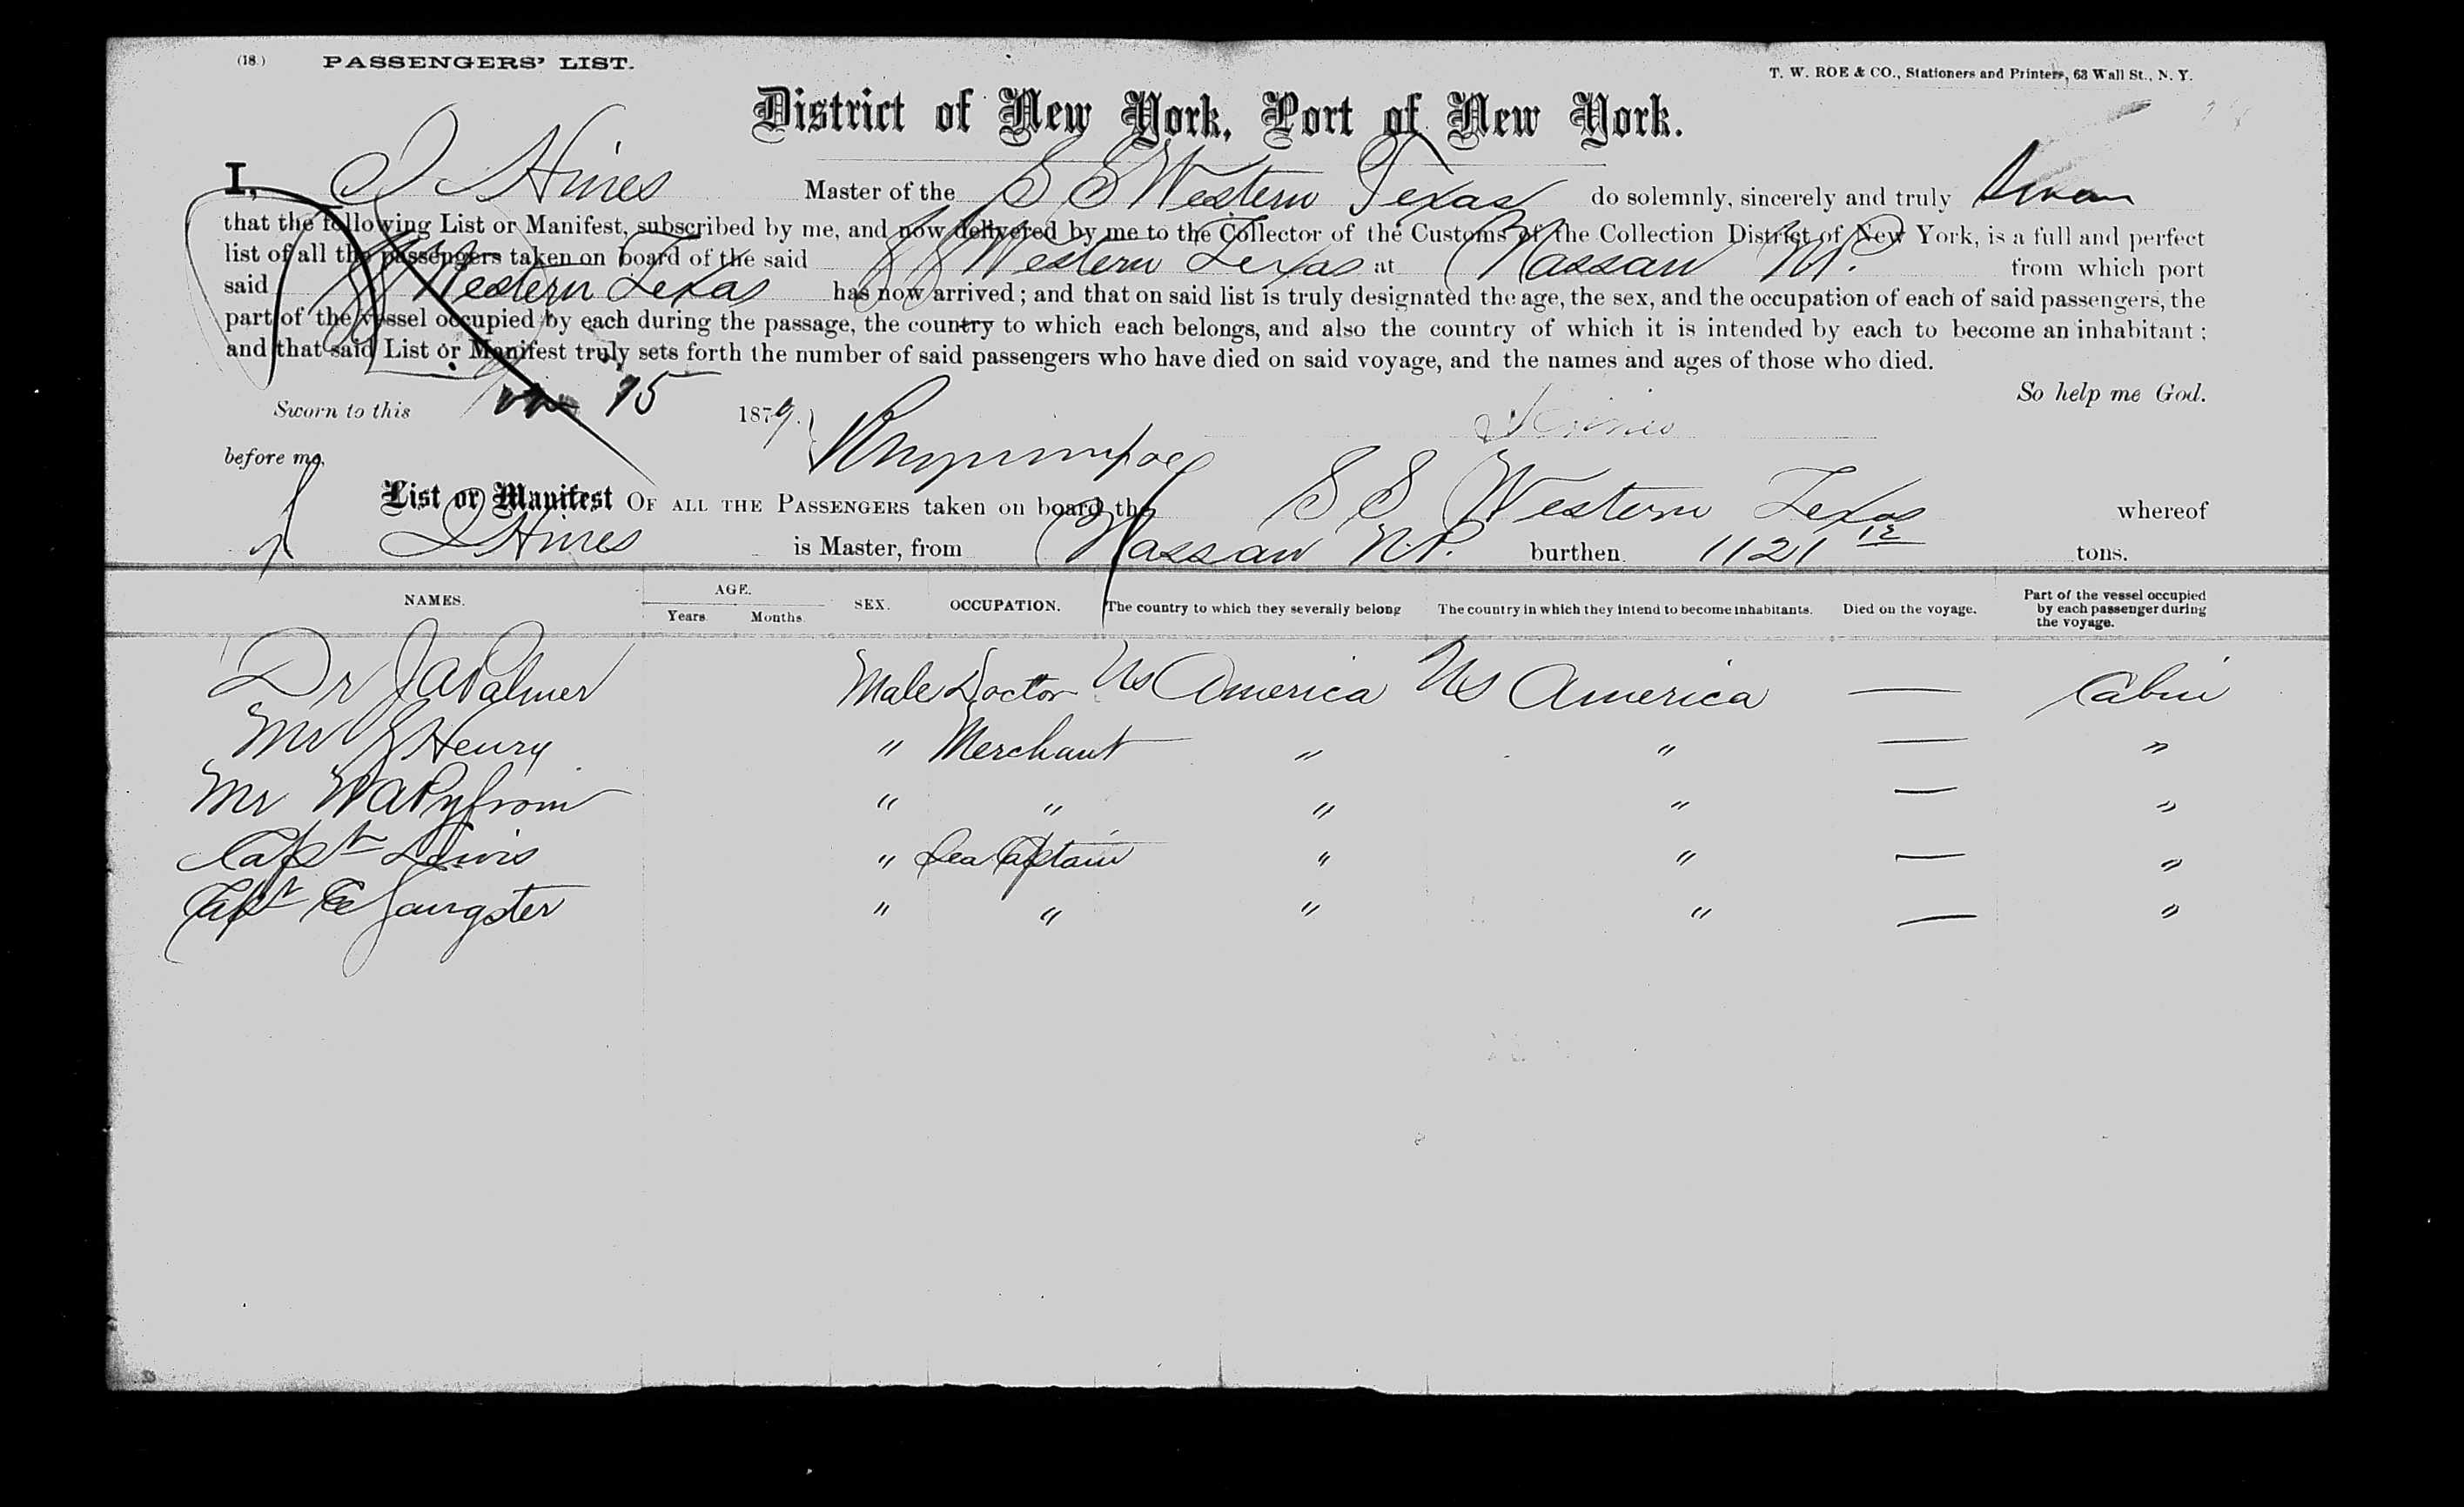 (18.) PASSENGERS' LIST.
T. W. ROE & CO., Stationers and Printers, 63 Wall St., N. Y.
District of New York, Port of New York.
I, Hines Master of the S S Western Texas do solemnly, sincerely and truly Swear
that the following List or Manifest, subscribed by me, and now delivered by me to the Collector of the Customs of the Collection District of New York, is a full and perfect
list of all the passengers taken on board of the said SS Western Texas at Nassau N.P. from which port
said SS Western Texas has now arrived; and that on said list is truly designated the age, the sex, and the occupation of each of said passengers, the
part of the vessel occupied by each during the passage, the country to which each belongs, and also the country of which it is intended by each to become an inhabitant;
and that said List or Manifest truly sets forth the number of said passengers who have died on said voyage, and the names and ages of those who died.
So help me God.
Sworn to this 15 1879.
Hines
before me,
List or Manifest OF ALL THE PASSENGERS taken on board the S S Western Texas whereof
Hines is Master, from Nassau N.P. burthen 1121 12 tons.
NAMES. AGE. Years. Months. SEX. OCCUPATION. The country to which they severally belong The country in which they intend to become inhabitants. Died on the voyage. Part of the vessel occupied by each passenger during the voyage.
Dr J A Palmer Male Doctor US America US America — Cabin
Mr Henry " Merchant " " — "
Mr W A Pyfrom " " " " — "
Capt Lewis " Sea Captain " " — "
Capt Sangster " " " " — "